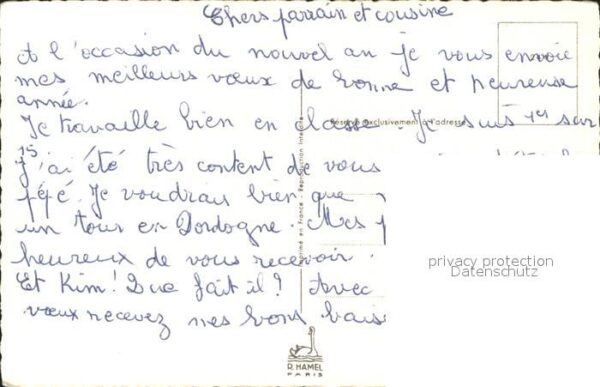 Chers parrain et cousine
A l'occasion du nouvel an je vous envoie
mes meilleurs vœux de bonne et heureuse
année.
Réservé exclusivement à l'adresse
Je travaille bien en classe. Je suis 1er sur
15
J'ai été très content de vous
pépé. Je voudrais bien que
un tour en Dordogne. Mes
heureux de vous recevoir.
Et Kim! Que fait il? Avec
vœux recevez mes bons bais
Imprimé en France - Reproduction Interdite
privacy protection
Datenschutz
R. HAMEL
PARIS